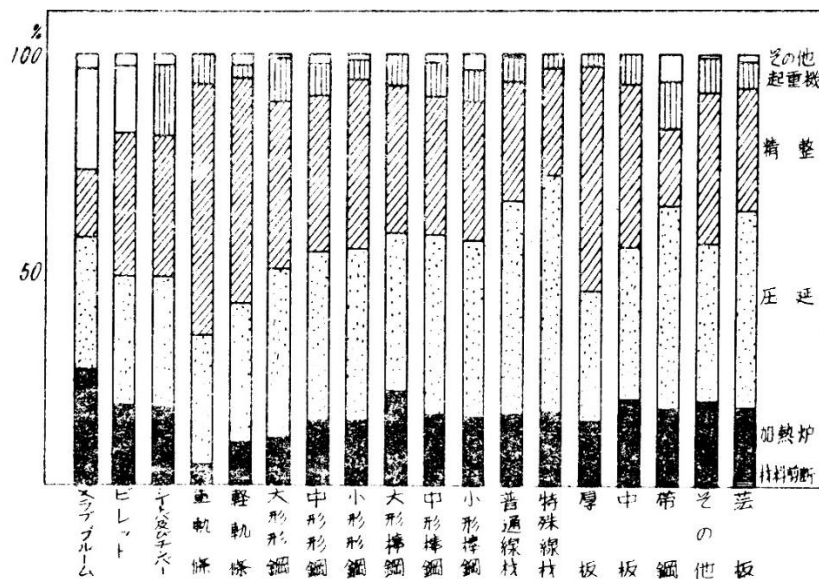 %
100
50
その他
起重機
精整
圧延
加熱炉
材料剪断
スラブ、ブルーム
ビレット
シートバー及びチンバー
重軌條
軽軌條
大形形鋼
中形形鋼
小形形鋼
大形棒鋼
中形棒鋼
小形棒鋼
普通線材
特殊線材
厚板
中板
帯鋼
その他